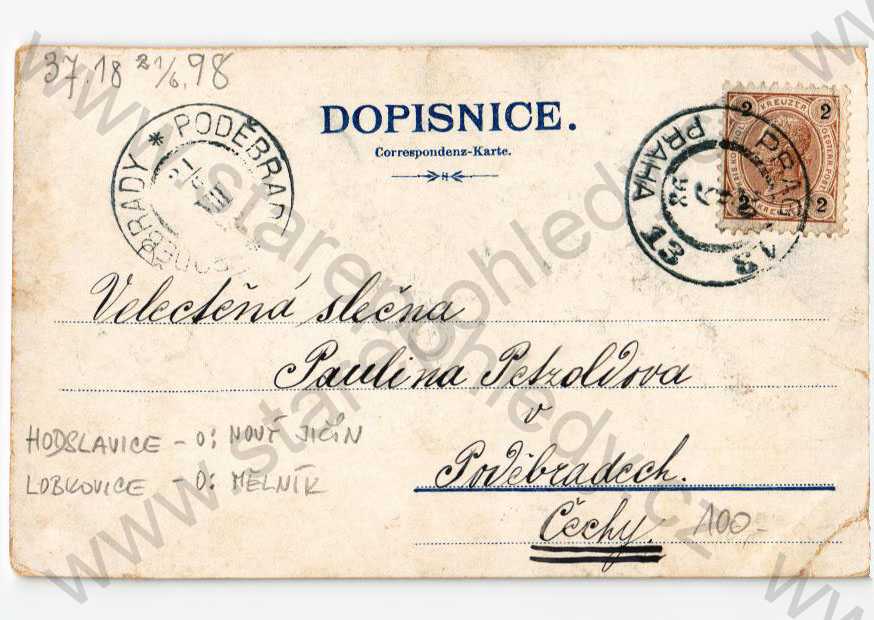 37.18 21/6.98
DOPISNICE.
Correspondenz-Karte.
* PODĚBRADY
PODĚBRAD
21/6
VIII
PRAG 13
PRAHA 13
98
2 KREUZER 2
2 2
Velectěná slečna
Paulina Petzoldova
v
Poděbradech.
Čechy.
HODSLAVICE - O: NOVÝ JIČÍN
LOBKOVICE - O: MĚLNÍK
100,-
www.starepohledy.cz